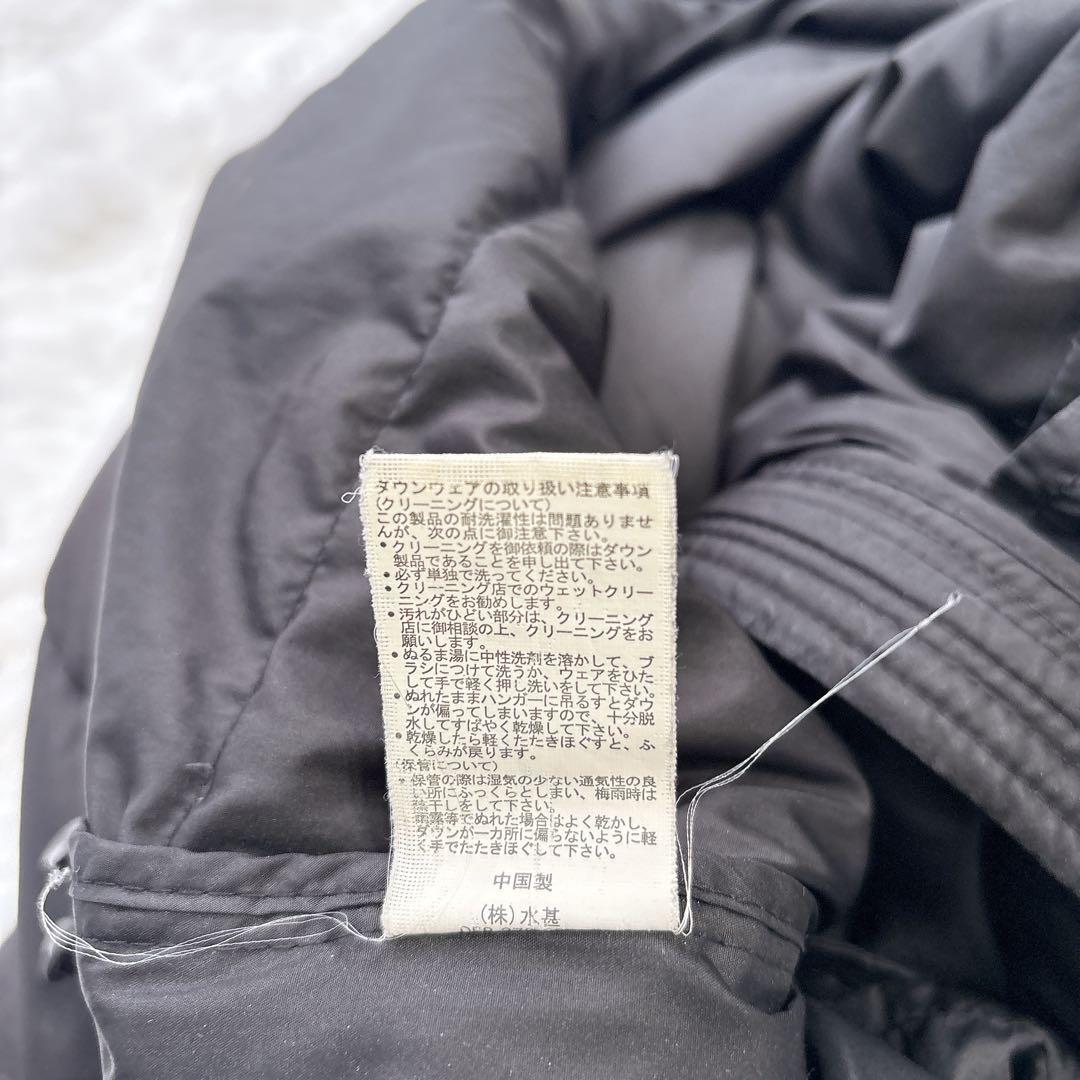 ダウンウェアの取り扱い注意事項
(クリーニングについて)
この製品の耐洗濯性は問題ありませ
んが、次の点に御注意下さい。
・クリーニングを御依頼の際はダウン
製品であることを申し出て下さい。
・必ず単独で洗ってください。
・クリーニング店でのウェットクリー
ニングをお勧めします。
・汚れがひどい部分は、クリーニング
店に御相談の上、クリーニングをお
願いします。
・ぬるま湯に中性洗剤を溶かして、ブ
ラシにつけて洗うか、ウェアをひた
して手で軽く押し洗いをして下さい。
・ぬれたままハンガーに吊るすとダウ
ンが偏ってしまいますので、十分脱
水してすばやく乾燥して下さい。
・乾燥したら軽くたたきほぐすと、ふ
くらみが戻ります。
(保管について)
・保管の際は湿気の少ない通気性の良
い所にふっくらとしまい、梅雨時は
陰干しをして下さい。
雨露等でぬれた場合はよく乾かし、
ダウンが一カ所に偏らないように軽
く手でたたきほぐして下さい。
中国製
(株)水甚